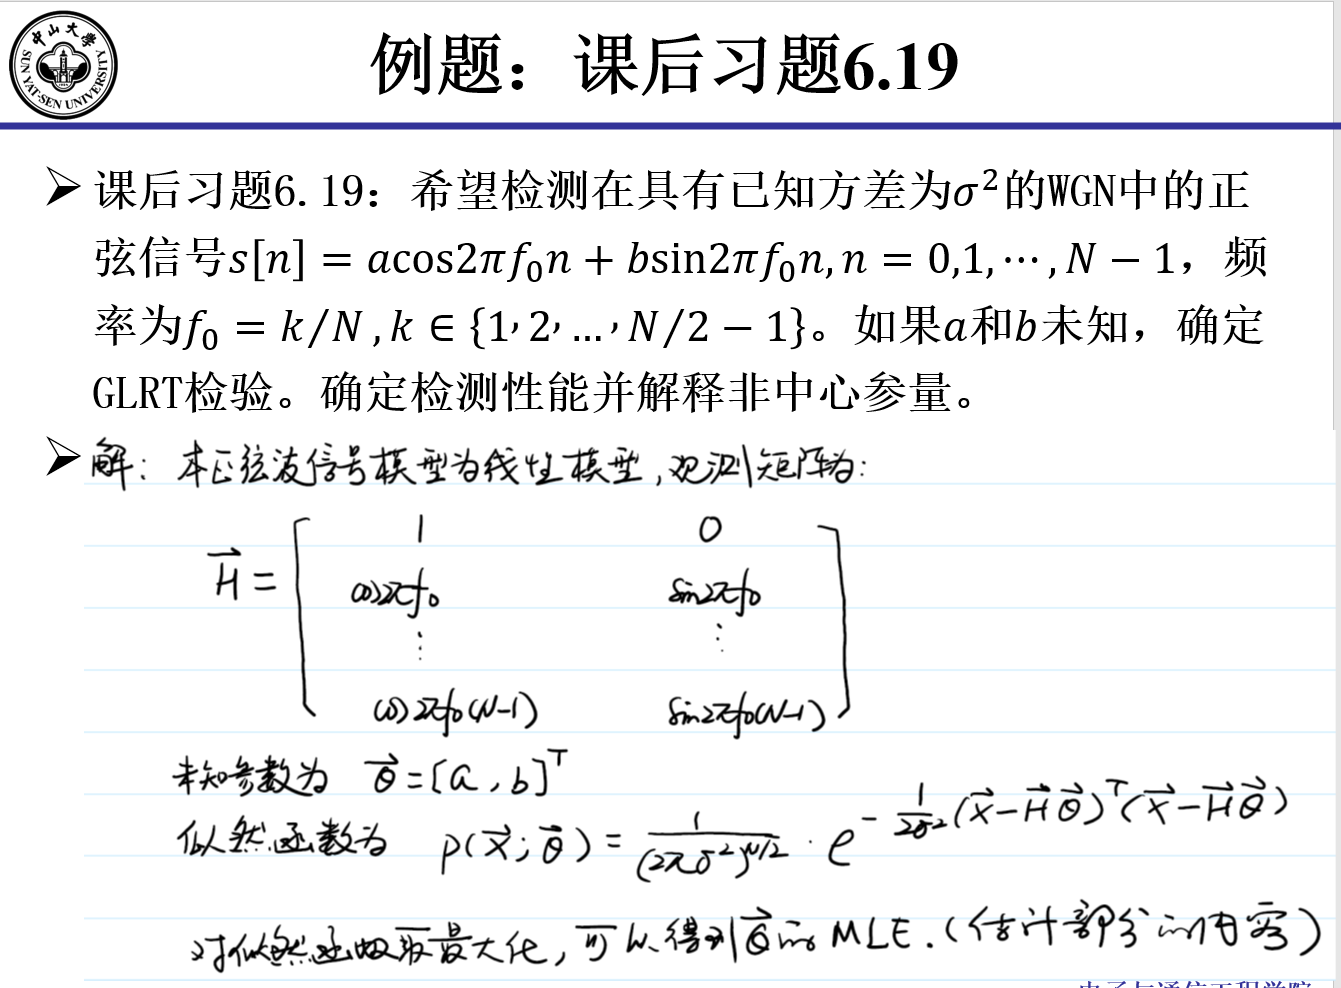 中山大学
SUN YAT-SEN UNIVERSITY
例题：课后习题6.19
➢ 课后习题6.19：希望检测在具有已知方差为σ²的WGN中的正
弦信号s[n] = acos2πf₀n + bsin2πf₀n, n = 0,1,⋯, N − 1，频
率为f₀ = k/N, k ∈ {1, 2, …, N/2 − 1}。如果a和b未知，确定
GLRT检验。确定检测性能并解释非中心参量。
➢ 解：本正弦波信号模型为线性模型，观测矩阵为：
1 0
H⃗ = [ cos2πf₀ sin2πf₀
⋮ ⋮
cos2πf₀(N-1) sin2πf₀(N-1) ]
未知参数为 θ⃗ = [a, b]ᵀ
似然函数为 p(x⃗; θ⃗) = 1/(2πσ²)^(N/2) · e^(-1/(2σ²) (x⃗-H⃗θ⃗)ᵀ(x⃗-H⃗θ⃗))
对似然函数取最大化，可以得到θ⃗的MLE.(估计部分的内容)
电子与通信工程学院